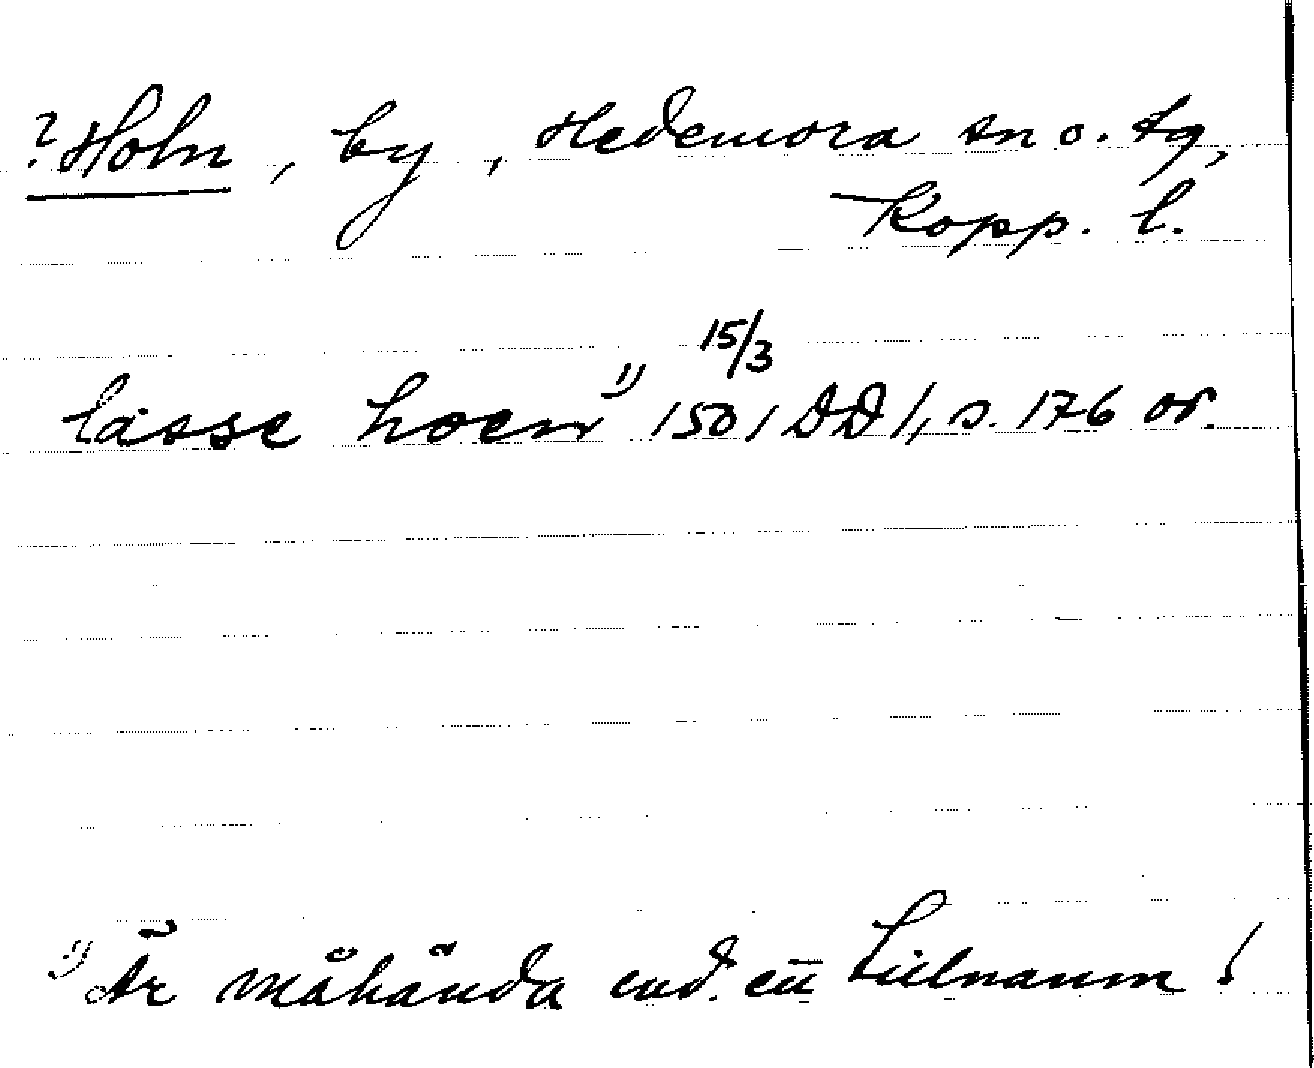 ? Holn, by, Hedemora sn o. tg,
Kopp. l.
lasse hoen 1) 15/3 1501 DD 1, s. 176 or.
1) Är måhända end. ett tillnamn!